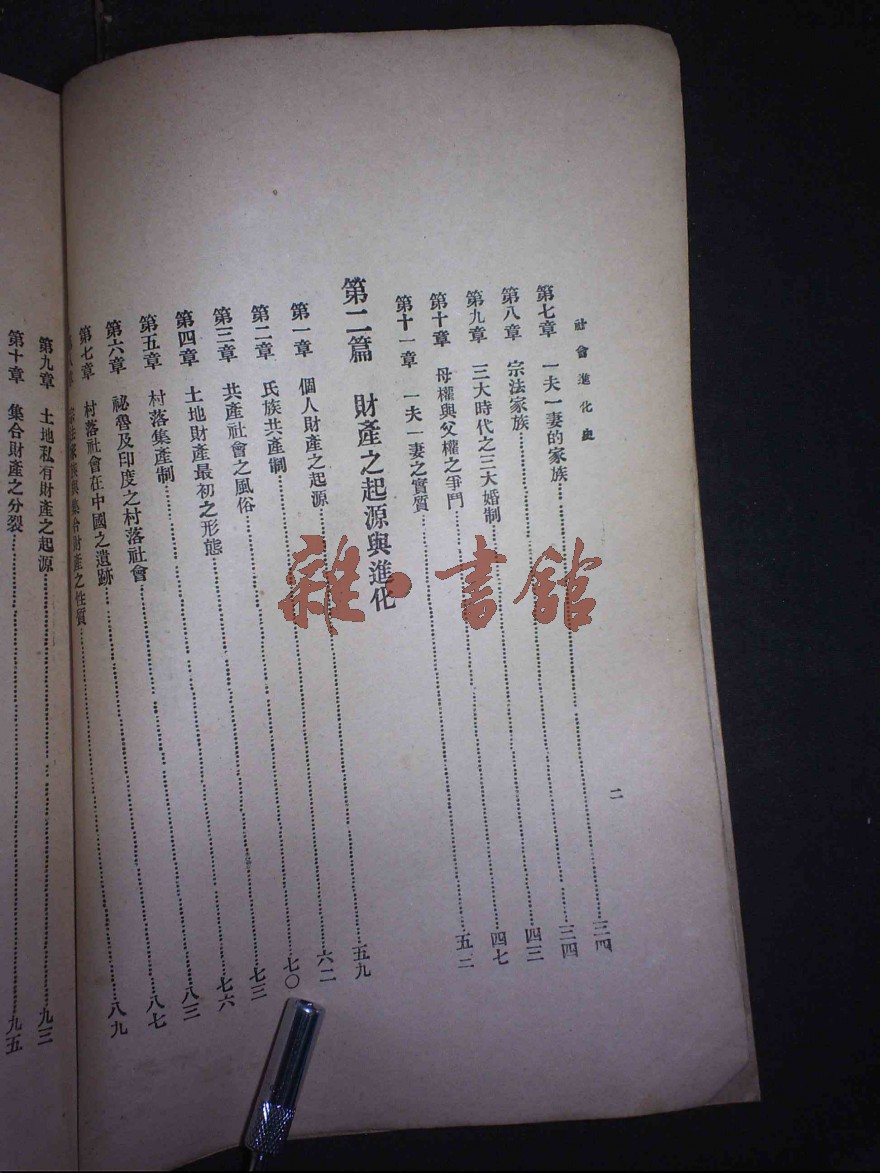 社會進化史
二
第七章 一夫一妻的家族……三四
第八章 宗法家族……三四
第九章 三大時代之三大婚制……四三
第十章 母權與父權之爭鬥……四七
第十一章 一夫一妻之實質……五二
第二篇 財產之起源與進化
第一章 個人財產之起源……五九
第二章 氏族共產制……六二
第三章 共產社會之風俗……七〇
第四章 土地財產最初之形態……七三
第五章 村落集產制……七六
第六章 祕魯及印度之村落社會……八三
第七章 村落社會在中國之遺跡……八七
第八章 宗法家族與集合財產之性質……八九
第九章 土地私有財產之起源……九三
第十章 集合財產之分裂……九五
雜·書館